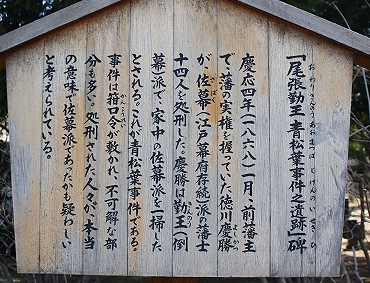 「尾張勤王青松葉事件之遺跡」碑
慶応四年(一八六八)一月、前藩主
で、藩の実権を握っていた徳川慶勝
が、佐幕(江戸幕府存続)派の藩士
十四人を処刑した。慶勝は勤王(倒
幕)派で、家中の佐幕派を一掃した
とされる。これが青松葉事件である。
事件は箝口令が敷かれ、不可解な部
分も多い。処刑された人々が、本当
の意味で佐幕派であったかも疑わしい
と考えられている。